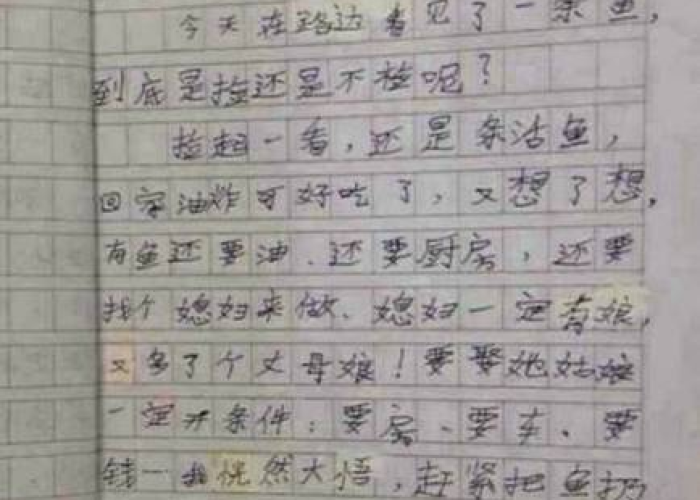 今天在路边看见了一条鱼,
到底是捡还是不捡呢?
捡起一看,还是条活鱼,
回家油炸可好吃了,又想了想,
有鱼还要油、还要厨房,还要
找个媳妇来做、媳妇一定有娘,
又多了个丈母娘!要娶她姑娘
一定开条件:要房、要车、要
钱…我恍然大悟,赶紧把鱼扔